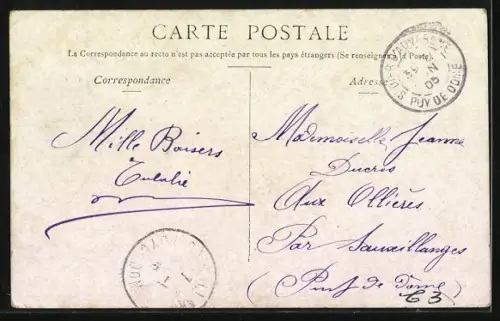 CARTE POSTALE
La Correspondance au recto n'est pas acceptée par tous les pays étrangers (Se renseigner à la Poste).
Correspondance
Adresse
Mille Baisers
Eulalie
Mademoiselle Jeanne
Ducris
Aux Ollières
Par Sauxillanges
(Puy de Dome)
63
PUY DE DOME